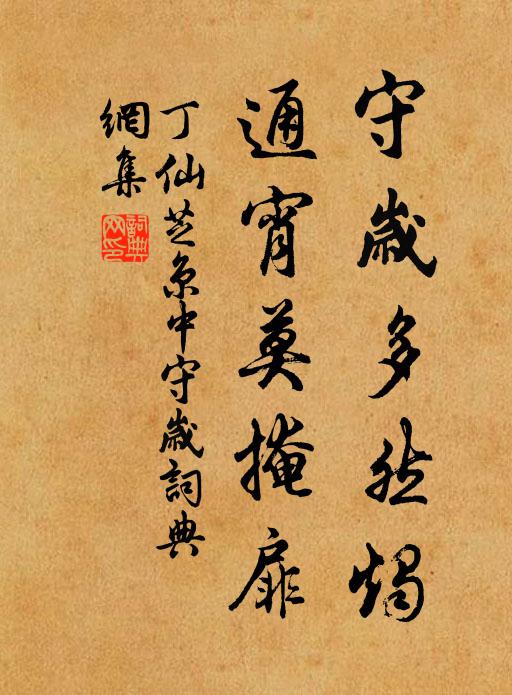 守歲多然燭
通宵莫掩扉
丁仙芝京中守歲詞典
網集
詞典網印